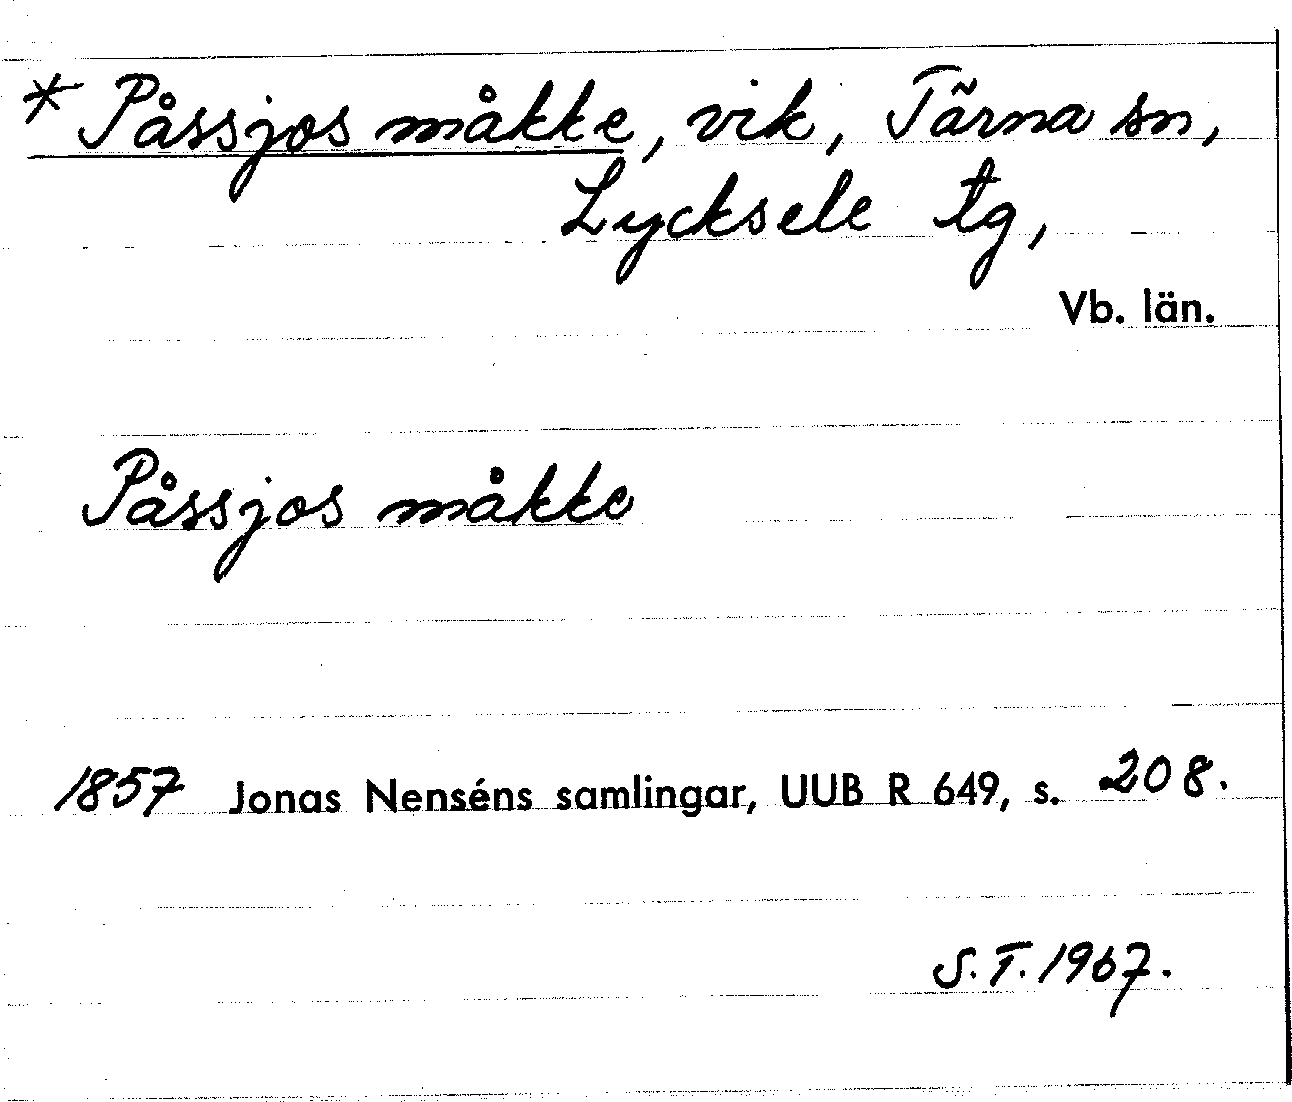 * Påssjos måkke, vik, Tärna sn,
Lycksele tg,
Vb. län.
Påssjos måkke
1857 Jonas Nenséns samlingar, UUB R 649, s. 208.
S.T. 1967.